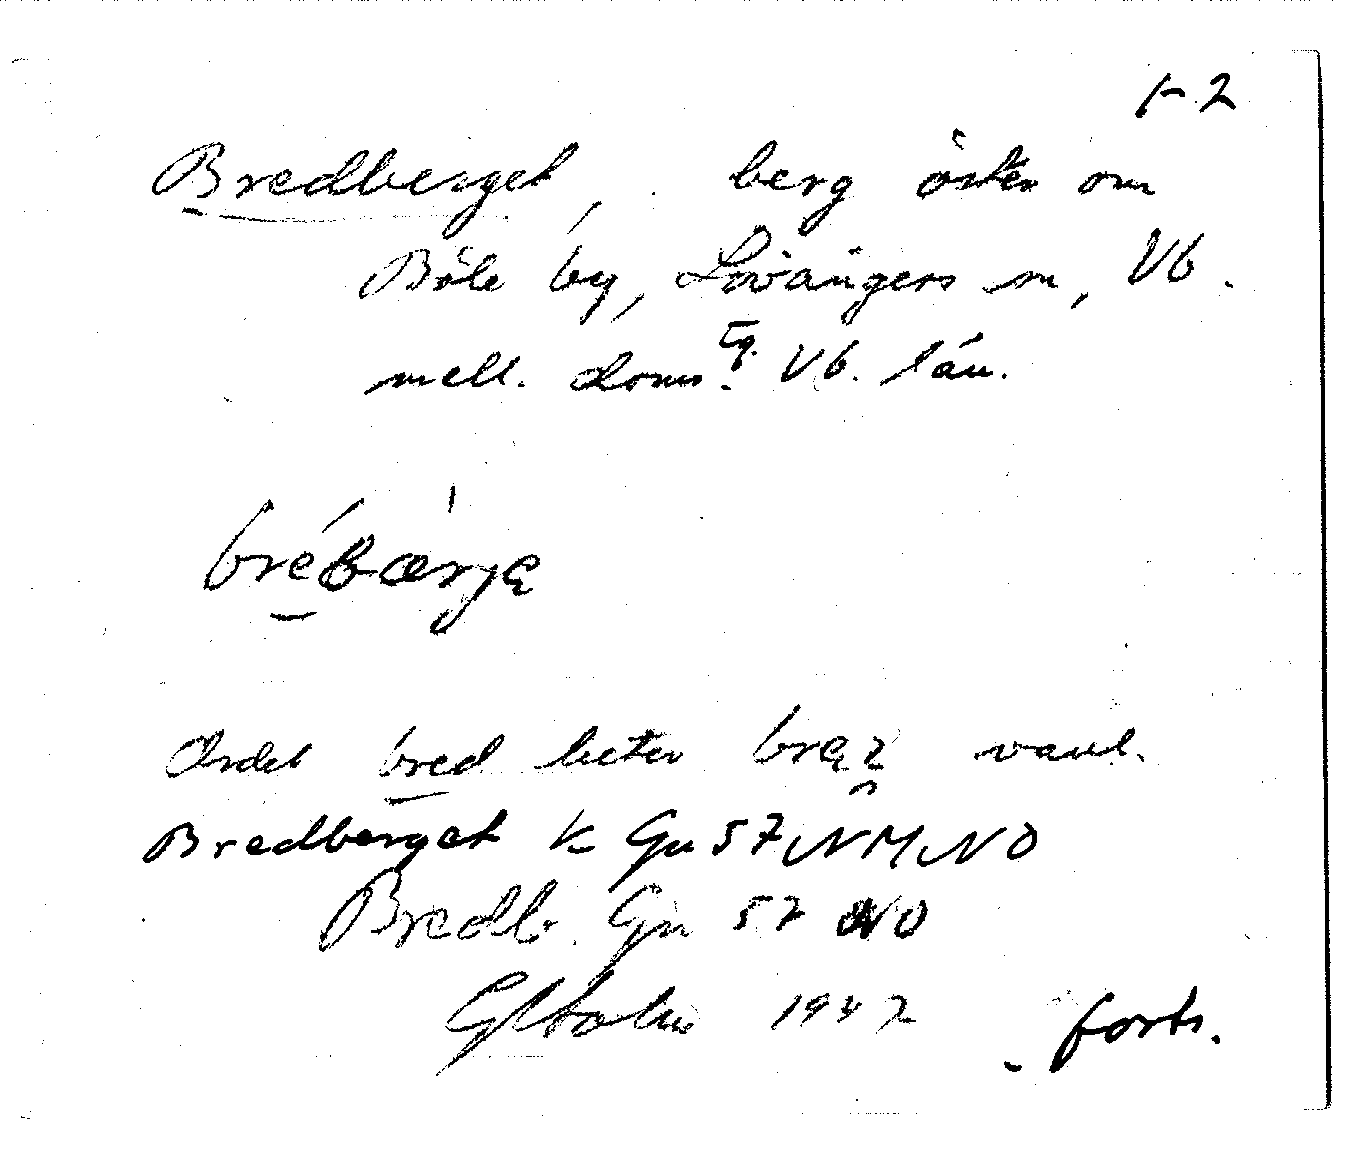 1-2
Bredberget, berg öster om
Böle by, Lövångers sn, Vb.
mell. doms. Vb. län.
brébærję
Ordet bred heter bręɩ vanl.
Bredberget K Gn 57 NM, NO
Bredb. Gn 57 NO
1947 forts.